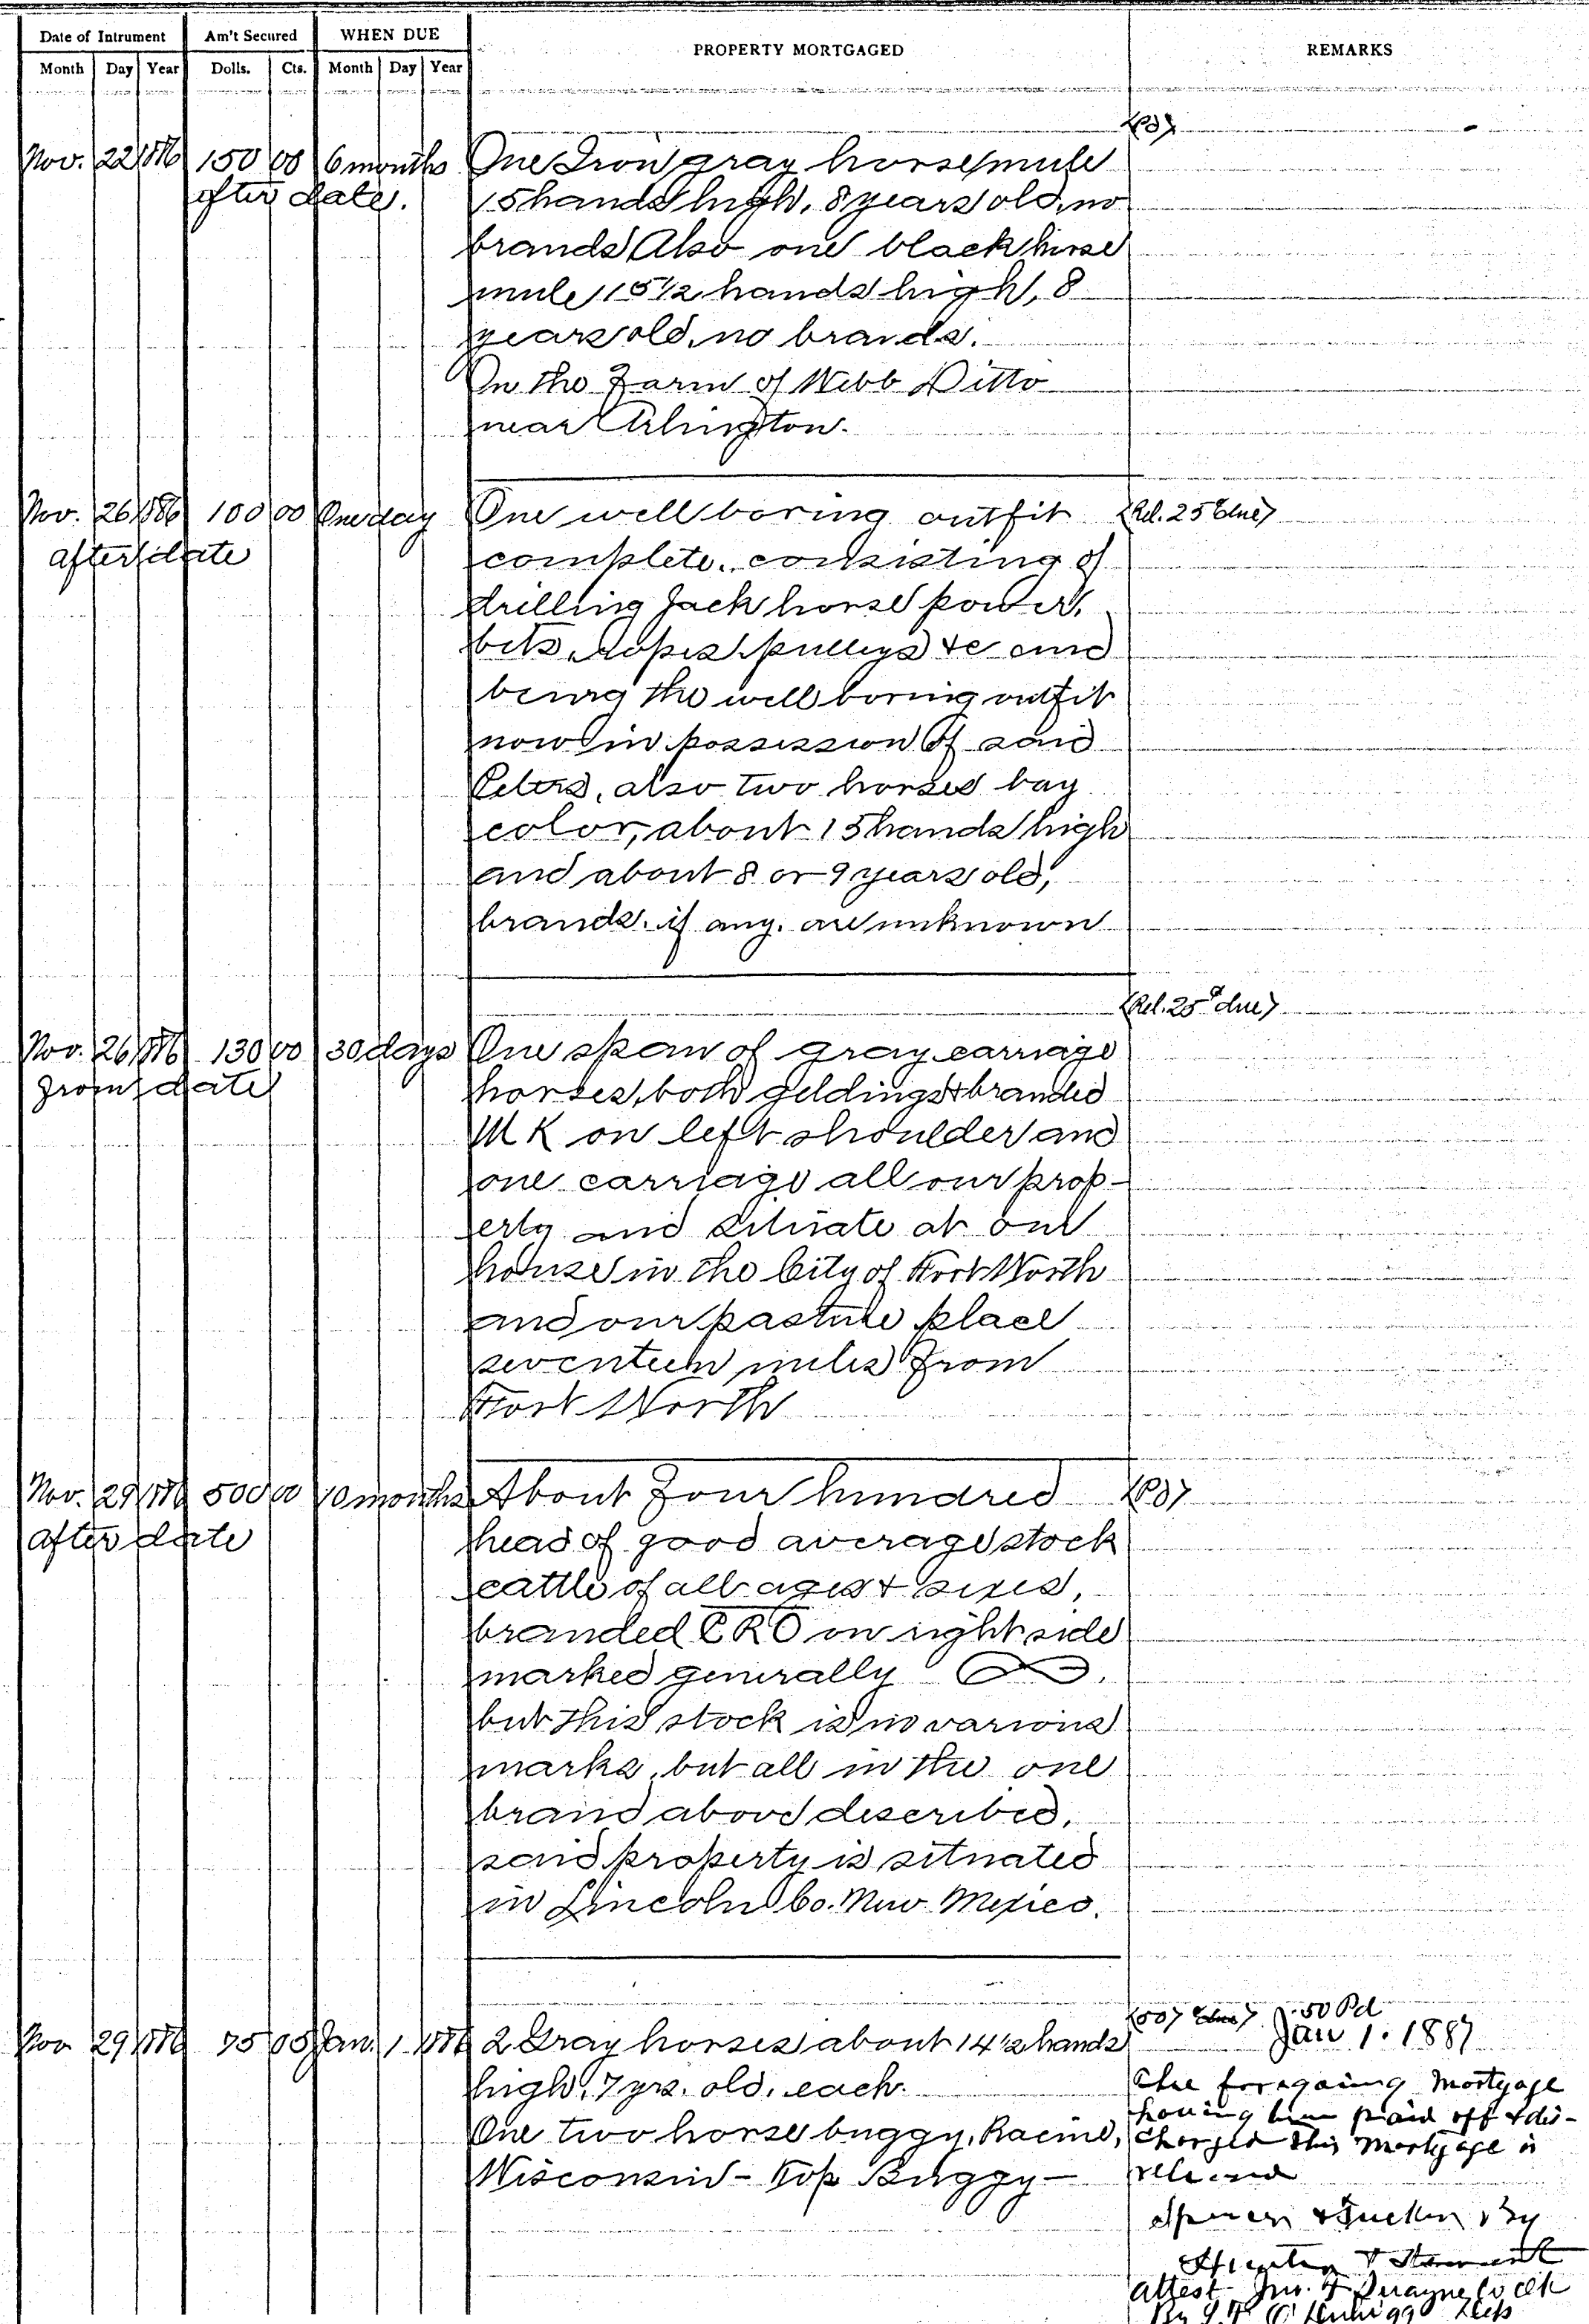 Date of Intrument Am't Secured WHEN DUE PROPERTY MORTGAGED REMARKS
Month Day Year Dolls. Cts. Month Day Year
Nov. 22 1886 150 00 6 months One Iron gray horse mule
after date. 15 hands high, 8 years old, no
brands Also one black horse
mule 15 1/2 hands high, 8
years old, no brands.
On the Farm of Webb Ditto
near Arlington.
Nov. 26 1886 100 00 One day One well boring outfit (Rel. 25 due)
after date complete, consisting of
drilling Jack horse power,
bits, ropes, pulleys &c and
being the well boring outfit
now in possession of said
Peters, also two horses bay
color, about 15 hands high
and about 8 or 9 years old,
brands, if any, are unknown
(Rel. 25 due)
Nov. 26 1886 130 00 30 days One span of gray carriage
from date horses, both geldings & branded
MK on left shoulder and
one carriage all our prop-
erty and situate at our
house in the City of Fort Worth
and our pasture place
seventeen miles from
Fort Worth
Nov. 29 1886 500 00 10 months About Four hundred
after date head of good average stock
cattle of all ages & sexes,
branded CRO on right side
marked generally
but this stock is in various
marks, but all in the one
brand above described,
said property is situated
in Lincoln Co. New Mexico.
(50) due) .50 Pd
Jan 1. 1887
Nov 29 1886 75 00 Jan. 1 188 2 Gray horses about 14 1/2 hands
high, 7 yrs. old, each.
One two horse buggy, Racine,
Wisconsin - Top Buggy -
The foregoing mortgage
having been paid off & dis-
charged this mortgage is
released
& Tucker By
&
attest Jno. F Swayne Co Clk
By